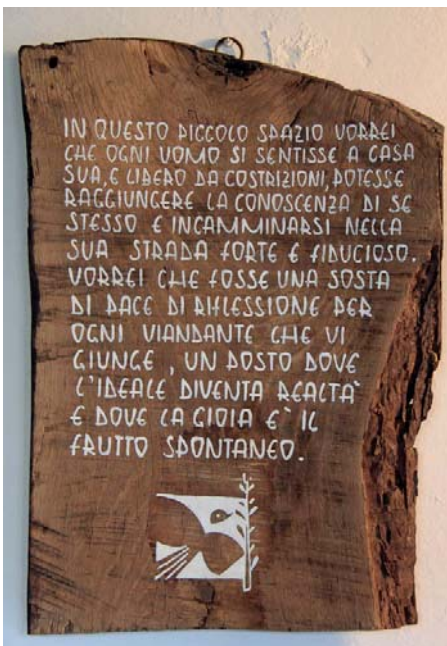 IN QUESTO PICCOLO SPAZIO VORREI
CHE OGNI UOMO SI SENTISSE A CASA
SUA, E LIBERO DA COSTRIZIONI, POTESSE
RAGGIUNGERE LA CONOSCENZA DI SE
STESSO E INCAMMINARSI NELLA
SUA STRADA FORTE E FIDUCIOSO.
VORREI CHE FOSSE UNA SOSTA
DI PACE DI RIFLESSIONE PER
OGNI VIANDANTE CHE VI
GIUNGE, UN POSTO DOVE
L'IDEALE DIVENTA REALTA'
E DOVE LA GIOIA E' IL
FRUTTO SPONTANEO.